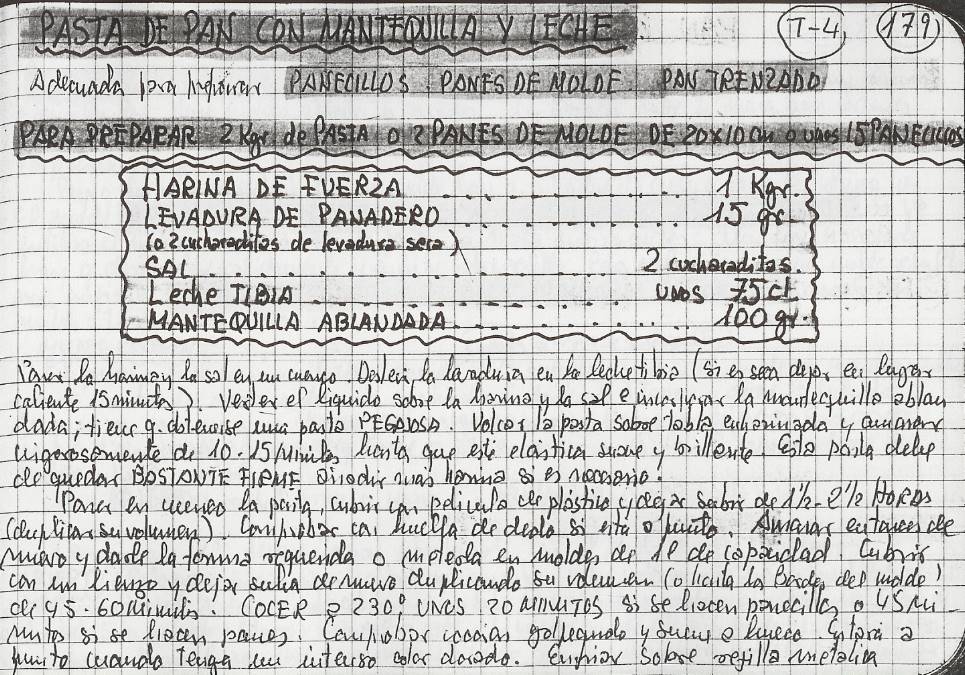 PASTA DE PAN CON MANTEQUILLA Y LECHE
T-4 179
Adecuada para preparar PANECILLOS PANES DE MOLDE PAN TRENZADO
PARA PREPARAR 2 Kgr de PASTA o 2 PANES DE MOLDE DE 20x10 cm o unos 15 PANECILLOS
HARINA DE FUERZA . . . . . . . . . . 1 Kgr.
LEVADURA DE PANADERO . . . . . . . . . . 15 gr.
(o 2 cucharaditas de levadura seca)
SAL . . . . . . . . . . 2 cucharaditas.
Leche TIBIA . . . . . . . . . . UNOS 75 cl
MANTEQUILLA ABLANDADA . . . . . . . . . . 100 gr.
Poner la harina y la sal en un cuenco. Desleir la levadura en la leche tibia (si es seca dejar en lugar
caliente 15 minutos). Verter el líquido sobre la harina y la sal e incorporar la mantequilla ablan
dada; tiene q. obtenerse una pasta PEGAJOSA. Volcar la pasta sobre tabla enharinada y amasar
vigorosamente de 10-15 minutos hasta que esté elastica suave y brillante. Esta pasta debe
de quedar BASTANTE FIRME añadir mas harina si es necesario.
Poner en cuenco la pasta, cubrir con pelicula de plástico y dejar subir de 1½-2½ HORAS
(duplicar su volumen). Comprobar con huella de dedo si esta a punto. Amasar entonces de
nuevo y darle la forma requerida o meterla en moldes de 1l de capacidad. Cubrir
con un lienzo y dejar suba de nuevo duplicando su volumen (o hasta los Bordes del molde)
de 45-60 minutos. COCER a 230º UNOS 20 MINUTOS si se hacen panecillos o 45 mi
nutos si se hacen panes. Comprobar coccion golpeando y suene a hueco. Estará a
punto cuando tenga un intenso color dorado. Enfriar sobre rejilla metalica